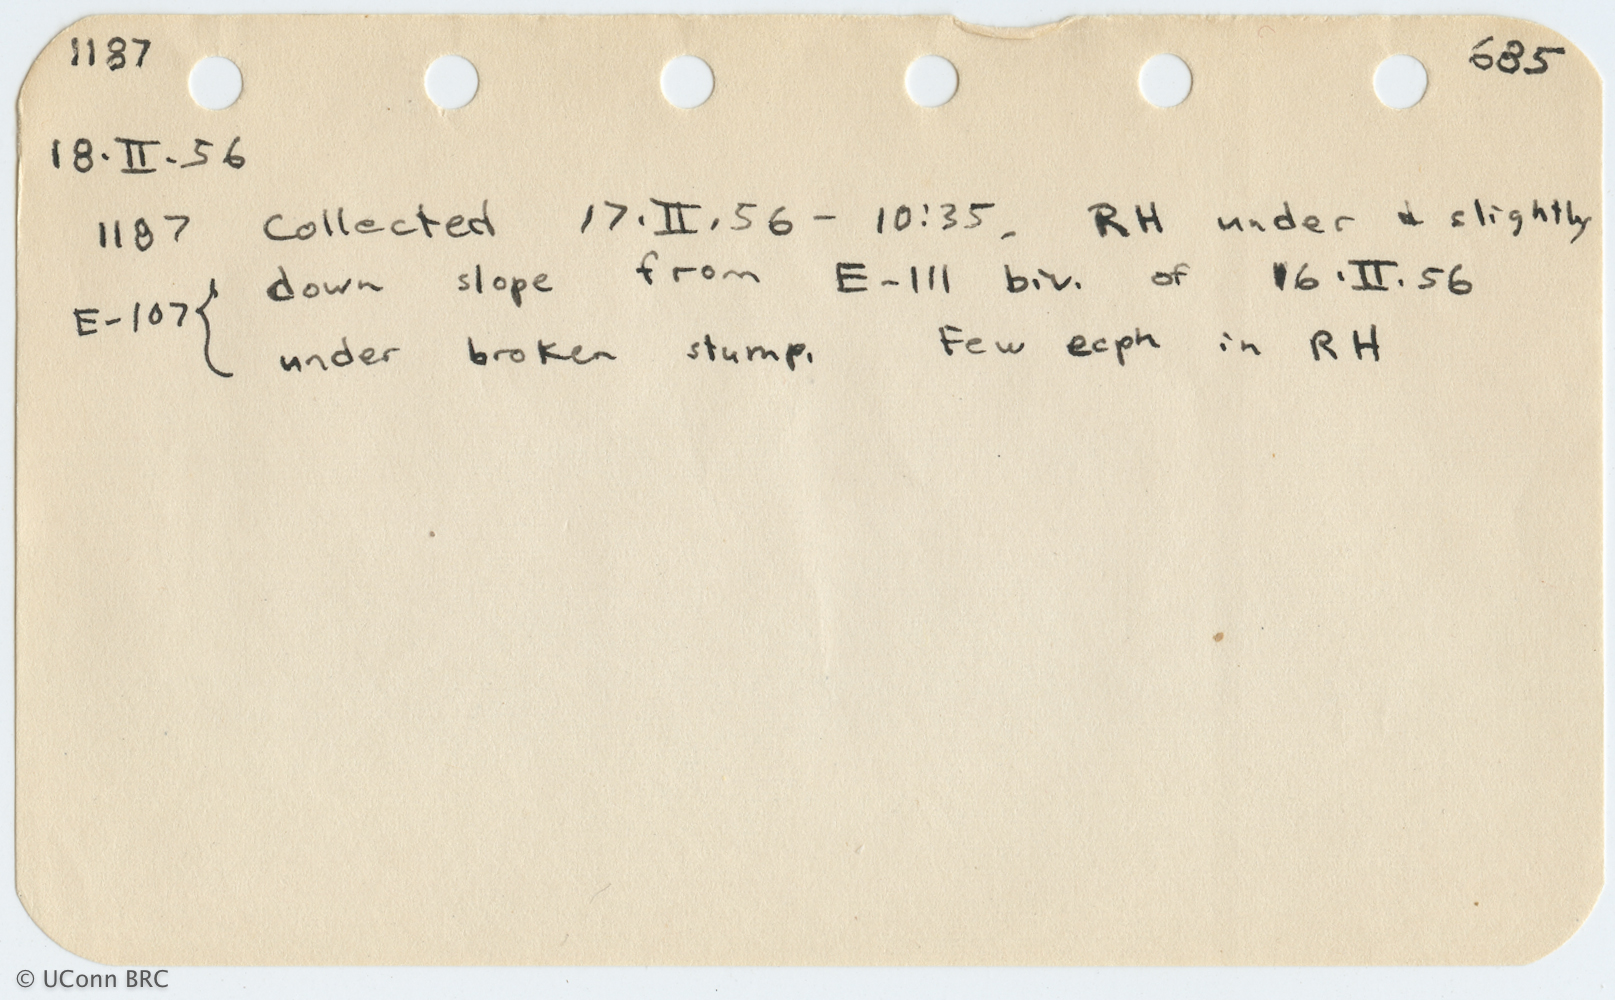 1187 685
18.II.56
1187 Collected 17.II.56 - 10:35. RH under & slightly
E-107 { down slope from E-111 biv. of 16.II.56
under broken stump. Few ecph in RH
© UConn BRC